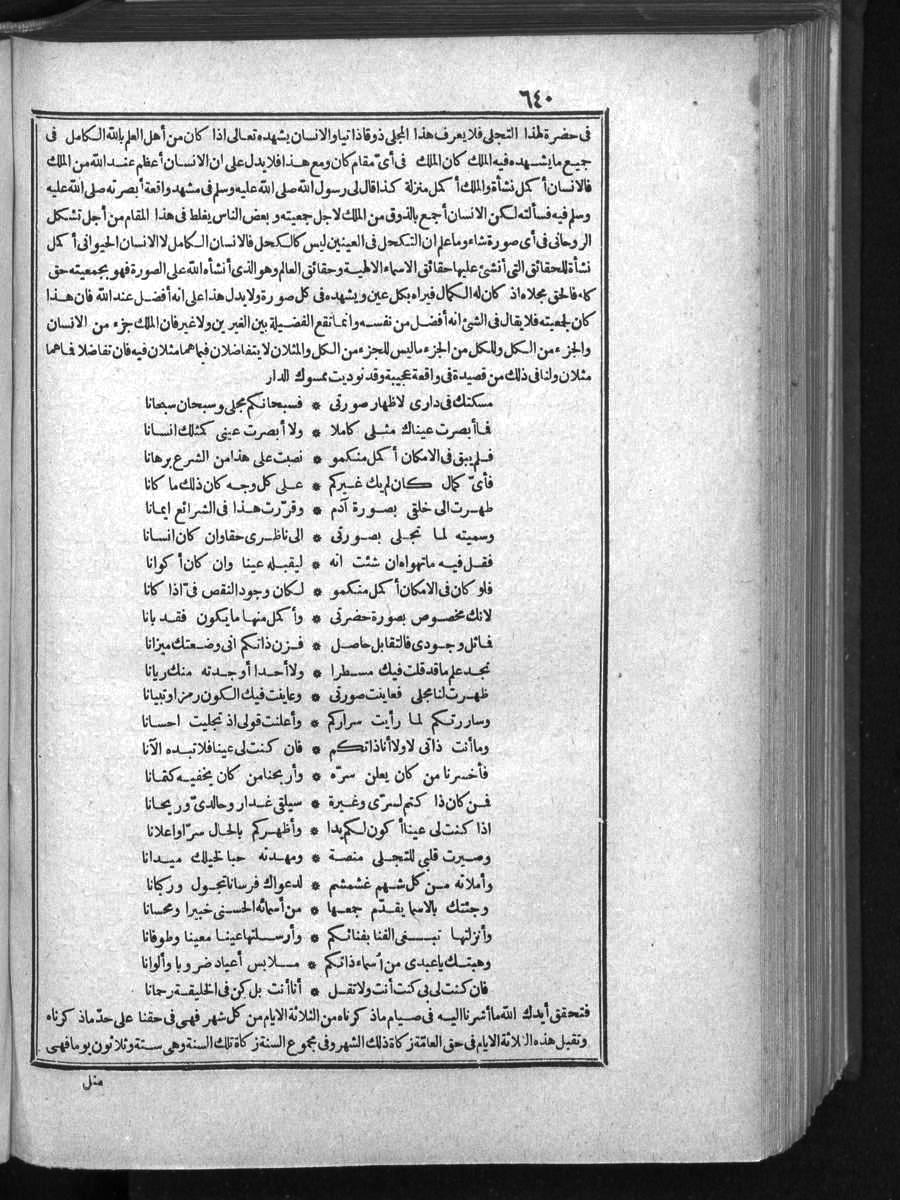 ٦٤٠
فى حضرة لهذا التجلى فلا يعرف هذا المجلى ذوقا ذاتيا والانسان يشهده تعالى اذا كان من أهل العلم بالله الكامل فى
جميع ما يشهده فيه الملك كان الملك فى أىّ مقام كان ومع هذا فلا يدل على ان الانسان أعظم عند الله من الملك
فالانسان أكمل نشأة والملك أكمل منزلة كذا قال لى رسول الله صلى الله عليه وسلم فى مشهد واقعة أبصرته صلى الله عليه
وسلم فيه فسألته لكن الانسان أجمع بالذوق من الملك لاجل جمعيته وبعض الناس يغلط فى هذا المقام من أجل تشكل
الروحانى فى أى صورة شاء وما علم ان التكحل فى العينين ليس كالكحل فالانسان الكامل لا الانسان الحيوانى أكمل
نشأة للحقائق التى أنشئ عليها حقائق الاسماء الالهية وحقائق العالم وهو الذى أنشأه الله على الصورة فهو بجمعيته حق
كله فالحق مجلاه اذ كان له الكمال فيراه بكل عين ويشهده فى كل صورة ولا يدل هذا على انه أفضل عند الله فان هذا
كان لجمعيته فلا يقال فى الشئ انه أفضل من نفسه وانما تقع الفضيلة بين الغيرين ولا غير فان الملك جزء من الانسان
والجزء من الكل وللكل من الجزء ما ليس للجزء من الكل والمثلان لا يتفاضلان فيما هما مثلان فيه فان تفاضلا فما هما
مثلان ولنا فى ذلك من قصيدة فى واقعة عجيبة وقد نوديت بمسوك الدار
مسكتك فى دارى لاظهار صورتى * فسبحانكم مجلى وسبحان سبحانا
فما أبصرت عيناك مثلى كاملا * ولا أبصرت عينى كمثلك انسانا
فلم يبق فى الامكان أكمل منكمو * نصبت على هذا من الشرع برهانا
فأىّ كمال كان لم يك غيركم * على كل وجه كان ذلك ما كانا
ظهرت الى خلقى بصورة آدم * وقرّرت هذا فى الشرائع ايمانا
وسميته لما تجلى بصورتى * الى ناظرى حقا وان كان انسانا
فقل فيه ما تهواه ان شئت انه * ليقبله عينا وان كان أكوانا
فلو كان فى الامكان أكمل منكمو * لكان وجود النقص فىّ اذا كانا
لانك مخصوص بصورة حضرتى * وأكمل منها ما يكون فقد بانا
فماثل وجودى فالتقابل حاصل * فزن ذاتكم انى وضعتك ميزانا
تجد علم ما قد قلت فيك مسطرا * ولا أحدا أوجدته منك ريانا
ظهرت لنا مجلى فعاينت صورتى * وعاينت فيك الكون رمزا وتبيانا
وساررتكم لما رأيت سراركم * وأعلنت قولى اذ تجليت احسانا
وما أنت ذاتى لا ولا أنا ذاتكم * فان كنت لى عينا فلا تبده الآنا
فأخسرنا من كان يعلن سرّه * وأربحنا من كان يخفيه كتمانا
فمن كان ذا كتم لسرّى وغيرة * سيلقى غدا روحا لدىّ وريحانا
اذا كنت لى عينا أكون لكم يدا * وأظهركم بالحال سرّا واعلانا
وصيرت قلبى للتجلى منصة * ومهدته حبا لخيلك ميدانا
وأملأته من كل شهم غشمشم * لدعواك فرسانا تجول وركبانا
وجئتك بالاسما يقدّم جمعها * من أسمائه الحسنى خبيرا ومحسانا
وأنزلتها تبغى الفنا بفنائكم * وأرسلتها عينا معينا وطوفانا
وهبتك يا عبدى من أسماء ذاتكم * ملابس أعياد ضروبا وألوانا
فان كنت لى بى كنت أنت ولا تقل * أنا أنت بل كن فى الخليقة رحمانا
فتحقق أيدك الله ما أشرنا اليه فى صيام ما ذكرناه من الثلاثة الايام من كل شهر فهى فى حقنا على حدّ ما ذكرناه
وتقبل هذه الثلاثة الايام فى حق العامّة زكاة ذلك الشهر وفى مجموع السنة زكاة تلك السنة وهى ستة وثلاثون يوما فهى
مثل